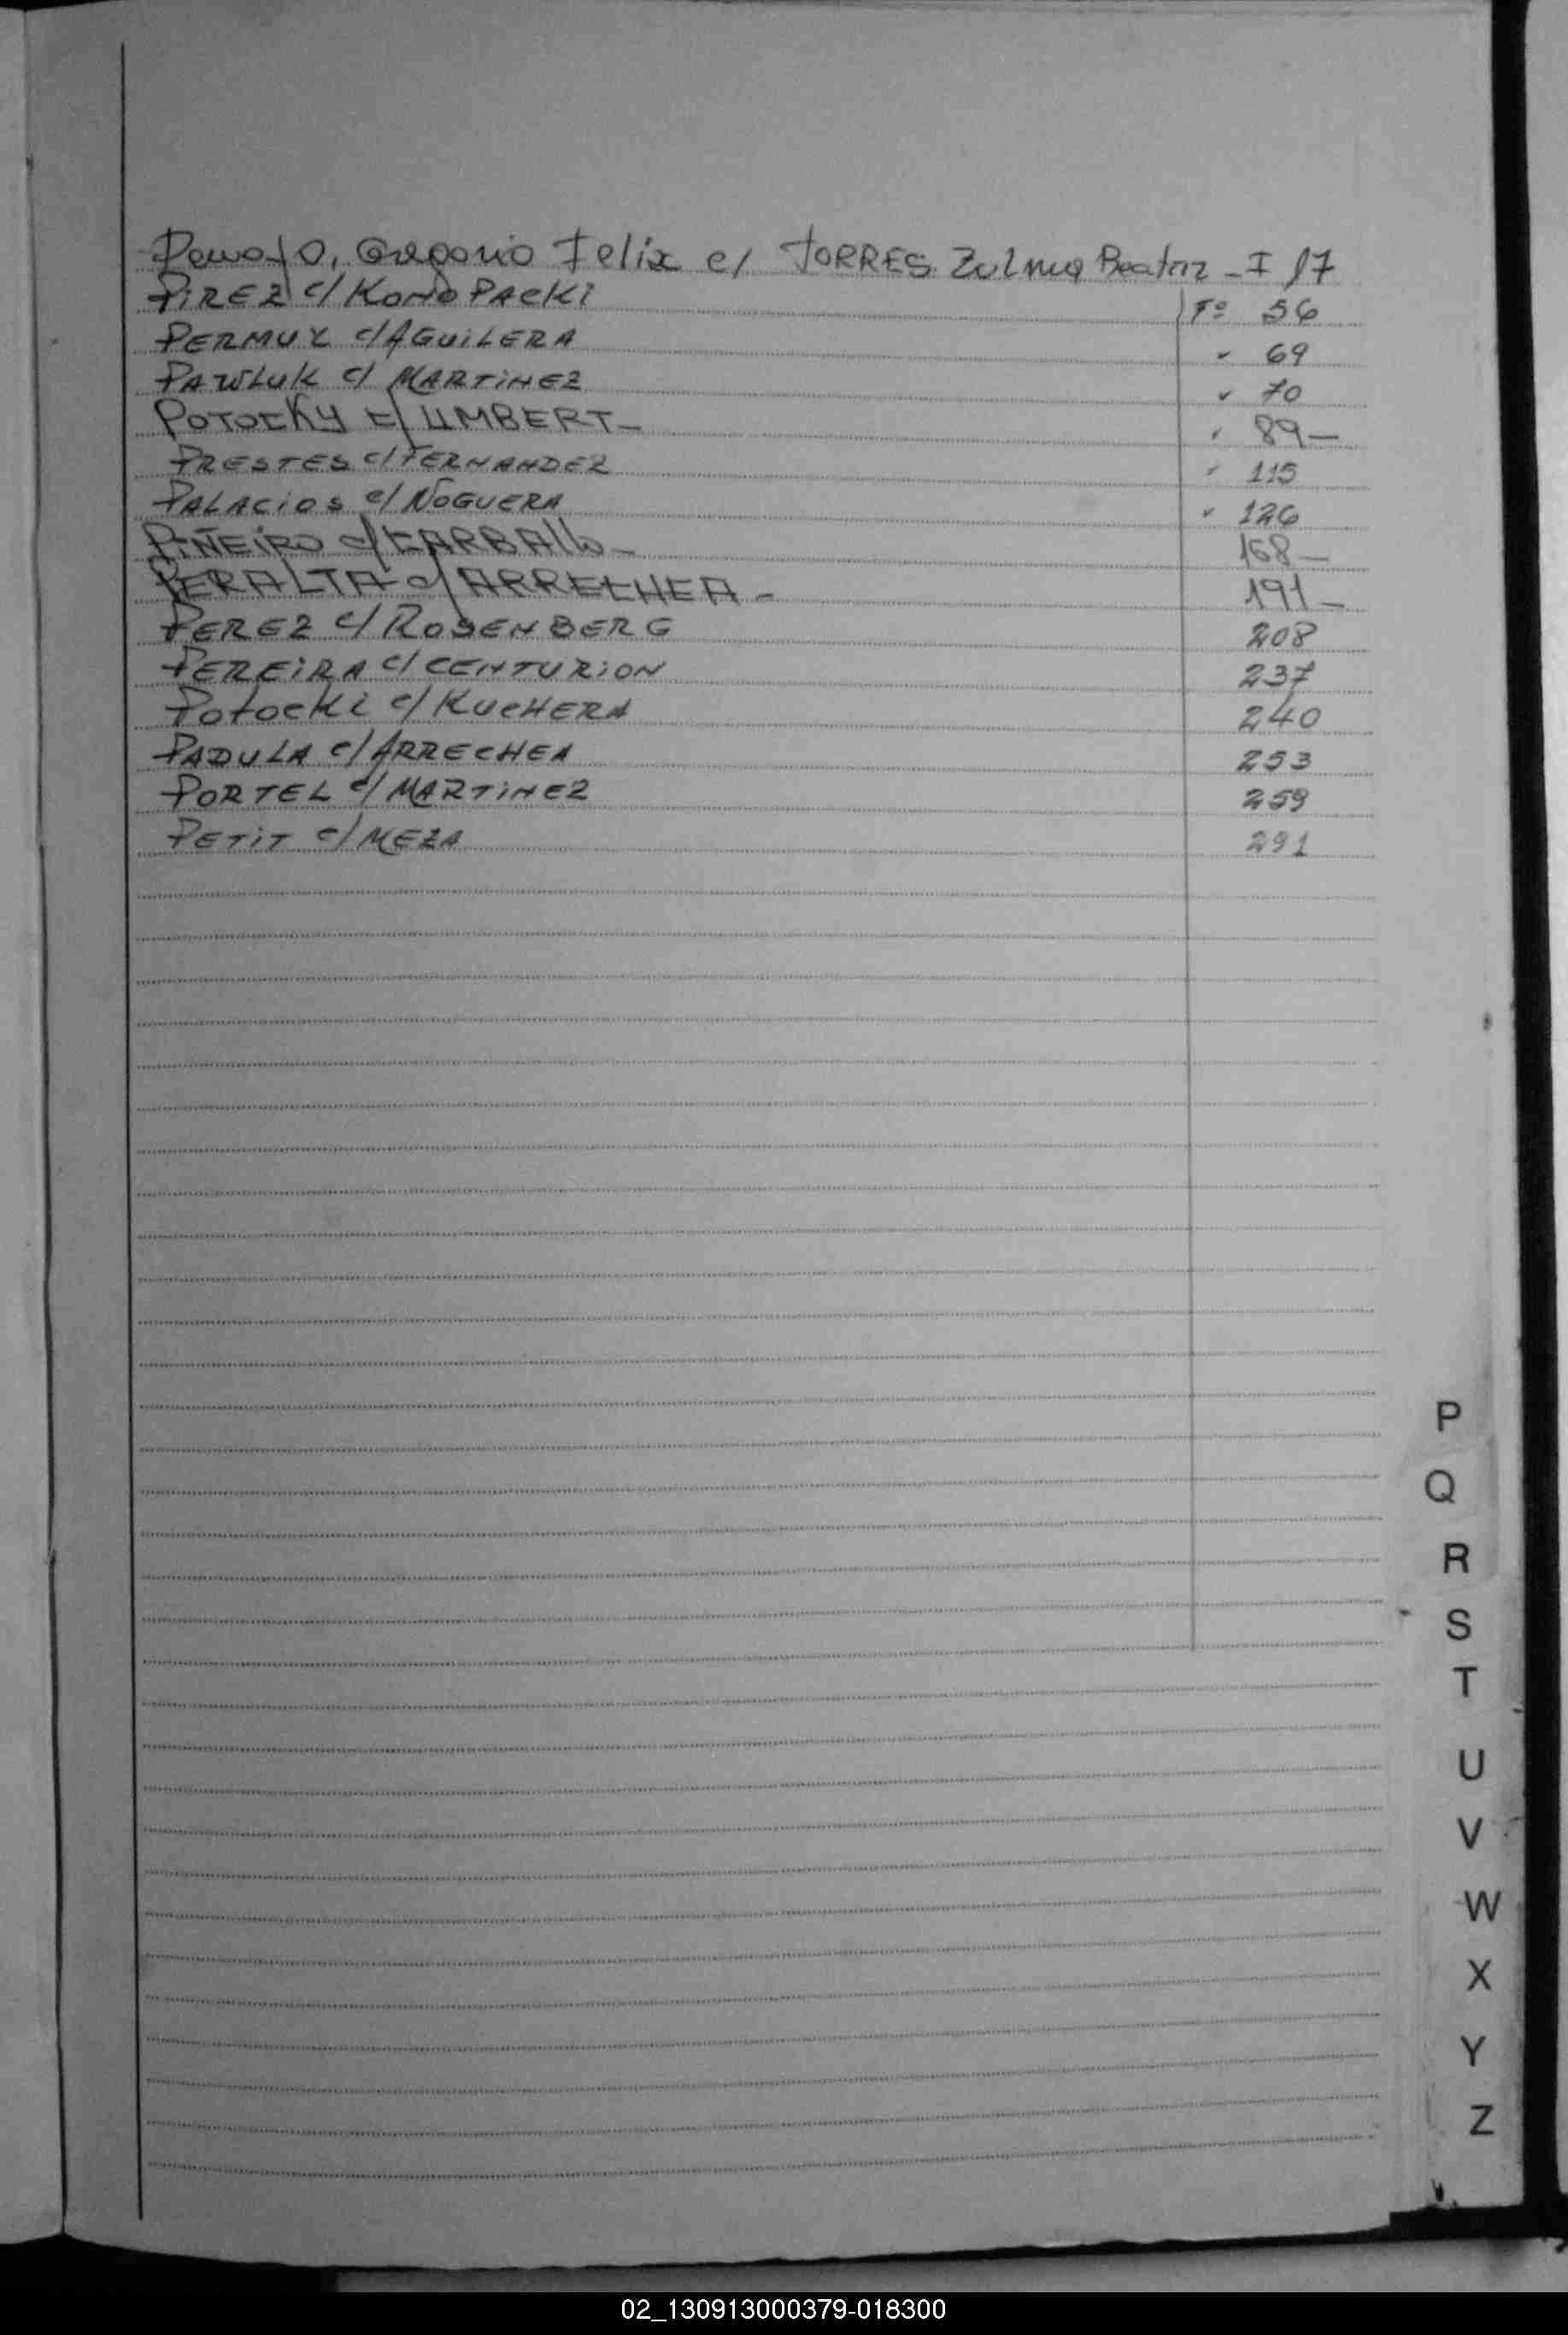 Gregorio Felix c/ TORRES Zulma Beatriz - I 17
PiREZ c/ KONOPACKi Fº 56
PERMUY c/ AGUiLERA " 69
PAWLUK c/ MARTiNEZ " 70
POTOCKY c/ UMBERT - " 89 -
PRESTES c/ FERNANDEZ " 115
PALACiOS c/ NOGUERA " 126
PiÑEiRO c/ CARBAllo - 168 -
PERALTA c/ ARRECHEA - 191 -
PEREZ c/ ROSENBERG 208
PEREiRA c/ CENTURiON 237
Potocki c/ KUCHERA 240
PADULA c/ ARRECHEA 253
PORTEL c/ MARTiNEZ 259
PETiT c/ MEZA 291
P
Q
R
S
T
U
V
W
X
Y
Z
02_130913000379-018300